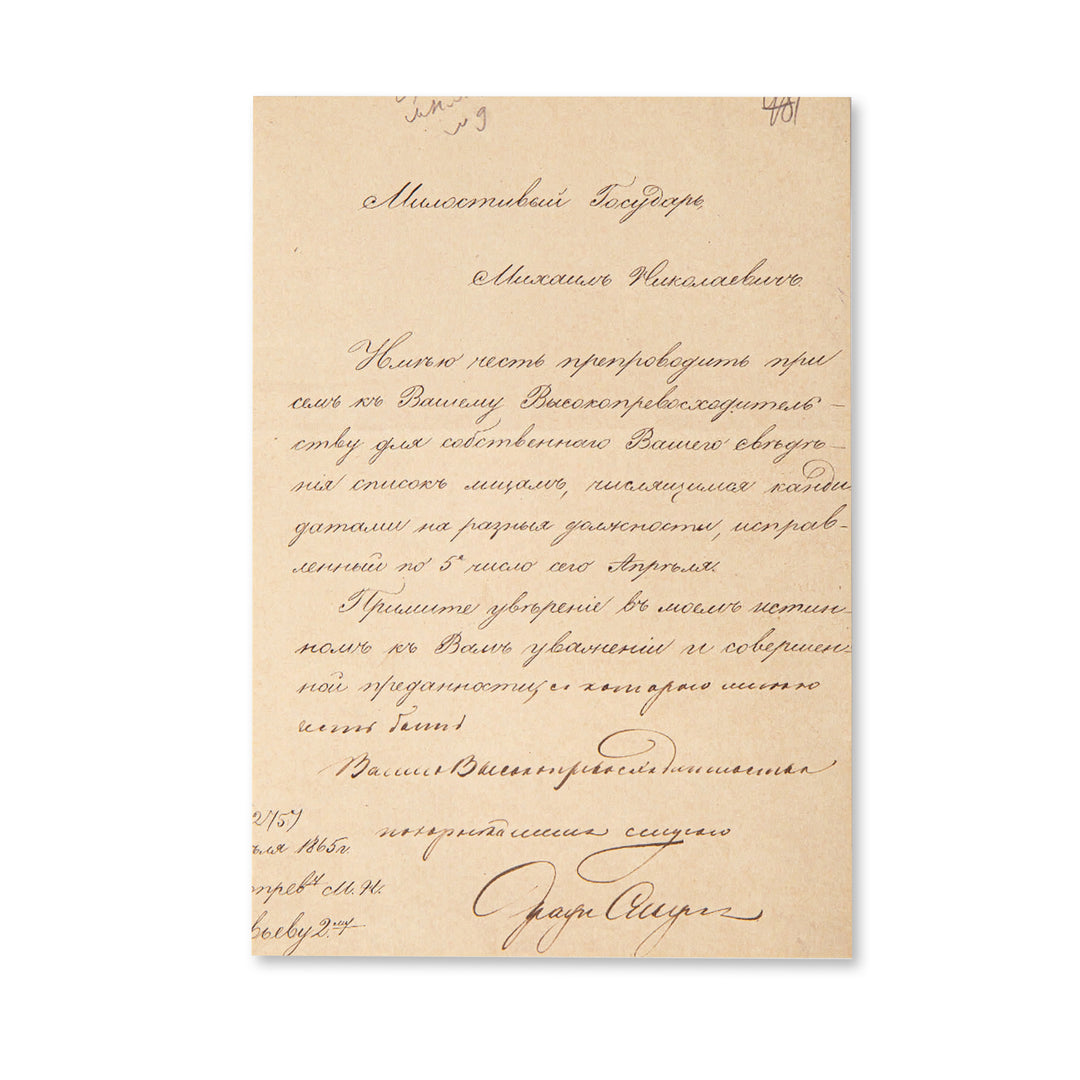 Милостивый Государь,
Михаилъ Николаевичъ.
Имѣю честь препроводить при
семъ къ Вашему Высокопревосходитель-
ству для собственнаго Вашего свѣдѣ-
нія списокъ лицамъ, числящимся канди
датами на разныя должности, исправ-
ленный по 5е число сего Апрѣля.
Примите увѣреніе въ моемъ истин-
номъ къ Вамъ уваженіи и совершен-
ной преданности, съ которою имѣю
честь быть
Вашего Высокопревосходительства
покорнѣйшимъ слугою
2757
ѣля 1865 г.
опрев. М. Н.
вьеву 2му